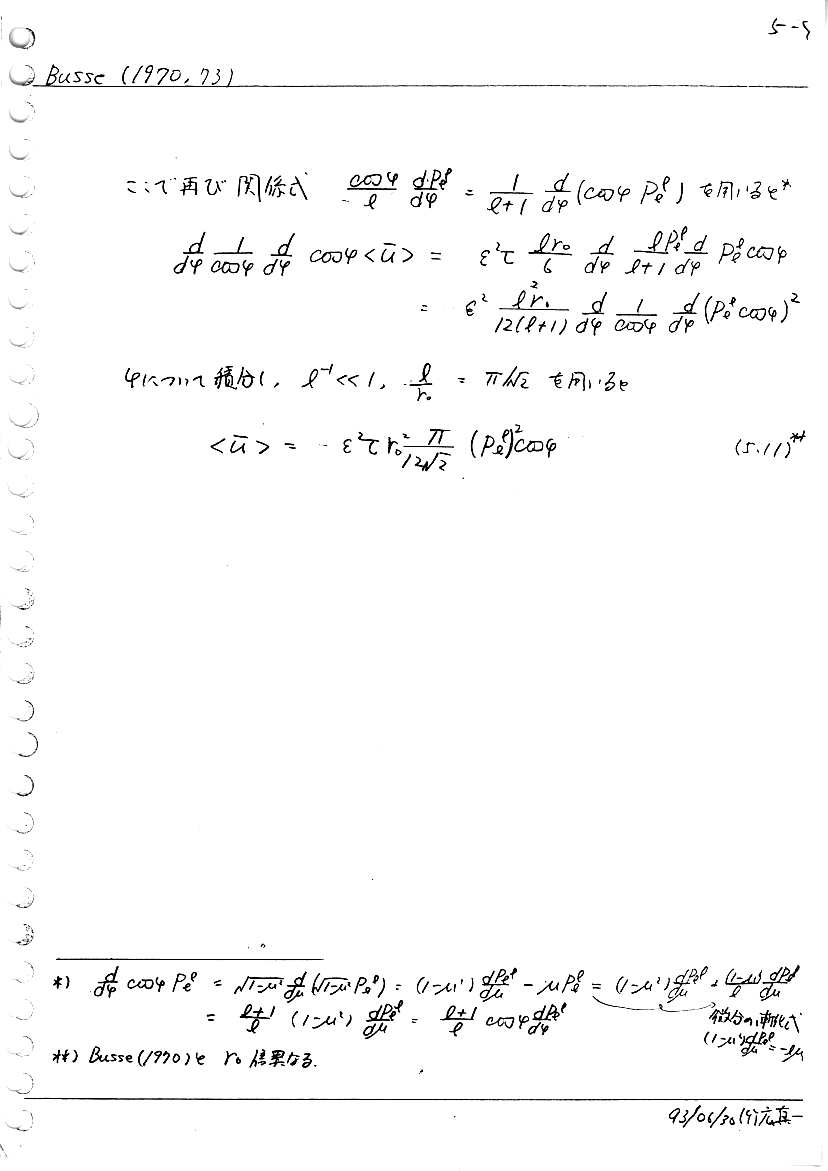 5-5
Busse (1970, 73)
ここで再び関係式 cosφ/l dP_l^l/dφ = 1/(l+1) d/dφ (cosφ P_l^l) を用いると*
d/dφ 1/cosφ d/dφ cosφ <ū> = ε²τ lr₀/6 d/dφ lP_l^l/(l+1) d/dφ P_l^l cosφ
= ε² lr₀²/12(l+1) d/dφ 1/cosφ d/dφ (P_l^l cosφ)²
φについて積分し, l⁻¹ << 1, l/r₀ = π/√2 を用いると
<ū> = - ε²τ r₀² π/12√2 (P_l^l)² cosφ (5.11)**
*) d/dφ cosφ P_l^l = √1-μ² d/dμ (√1-μ² P_l^l) = (1-μ²) dP_l^l/dμ - μP_l^l = (1-μ²) dP_l^l/dμ + (1-μ²)/l dP_l^l/dμ
= l+1/l (1-μ²) dP_l^l/dμ = l+1/l cosφ dP_l^l/dφ
微分の漸化式
(1-μ²) dP_l^l/dμ = -lμ
**) Busse (1970) と r₀ 倍異なる.
93/06/30 (